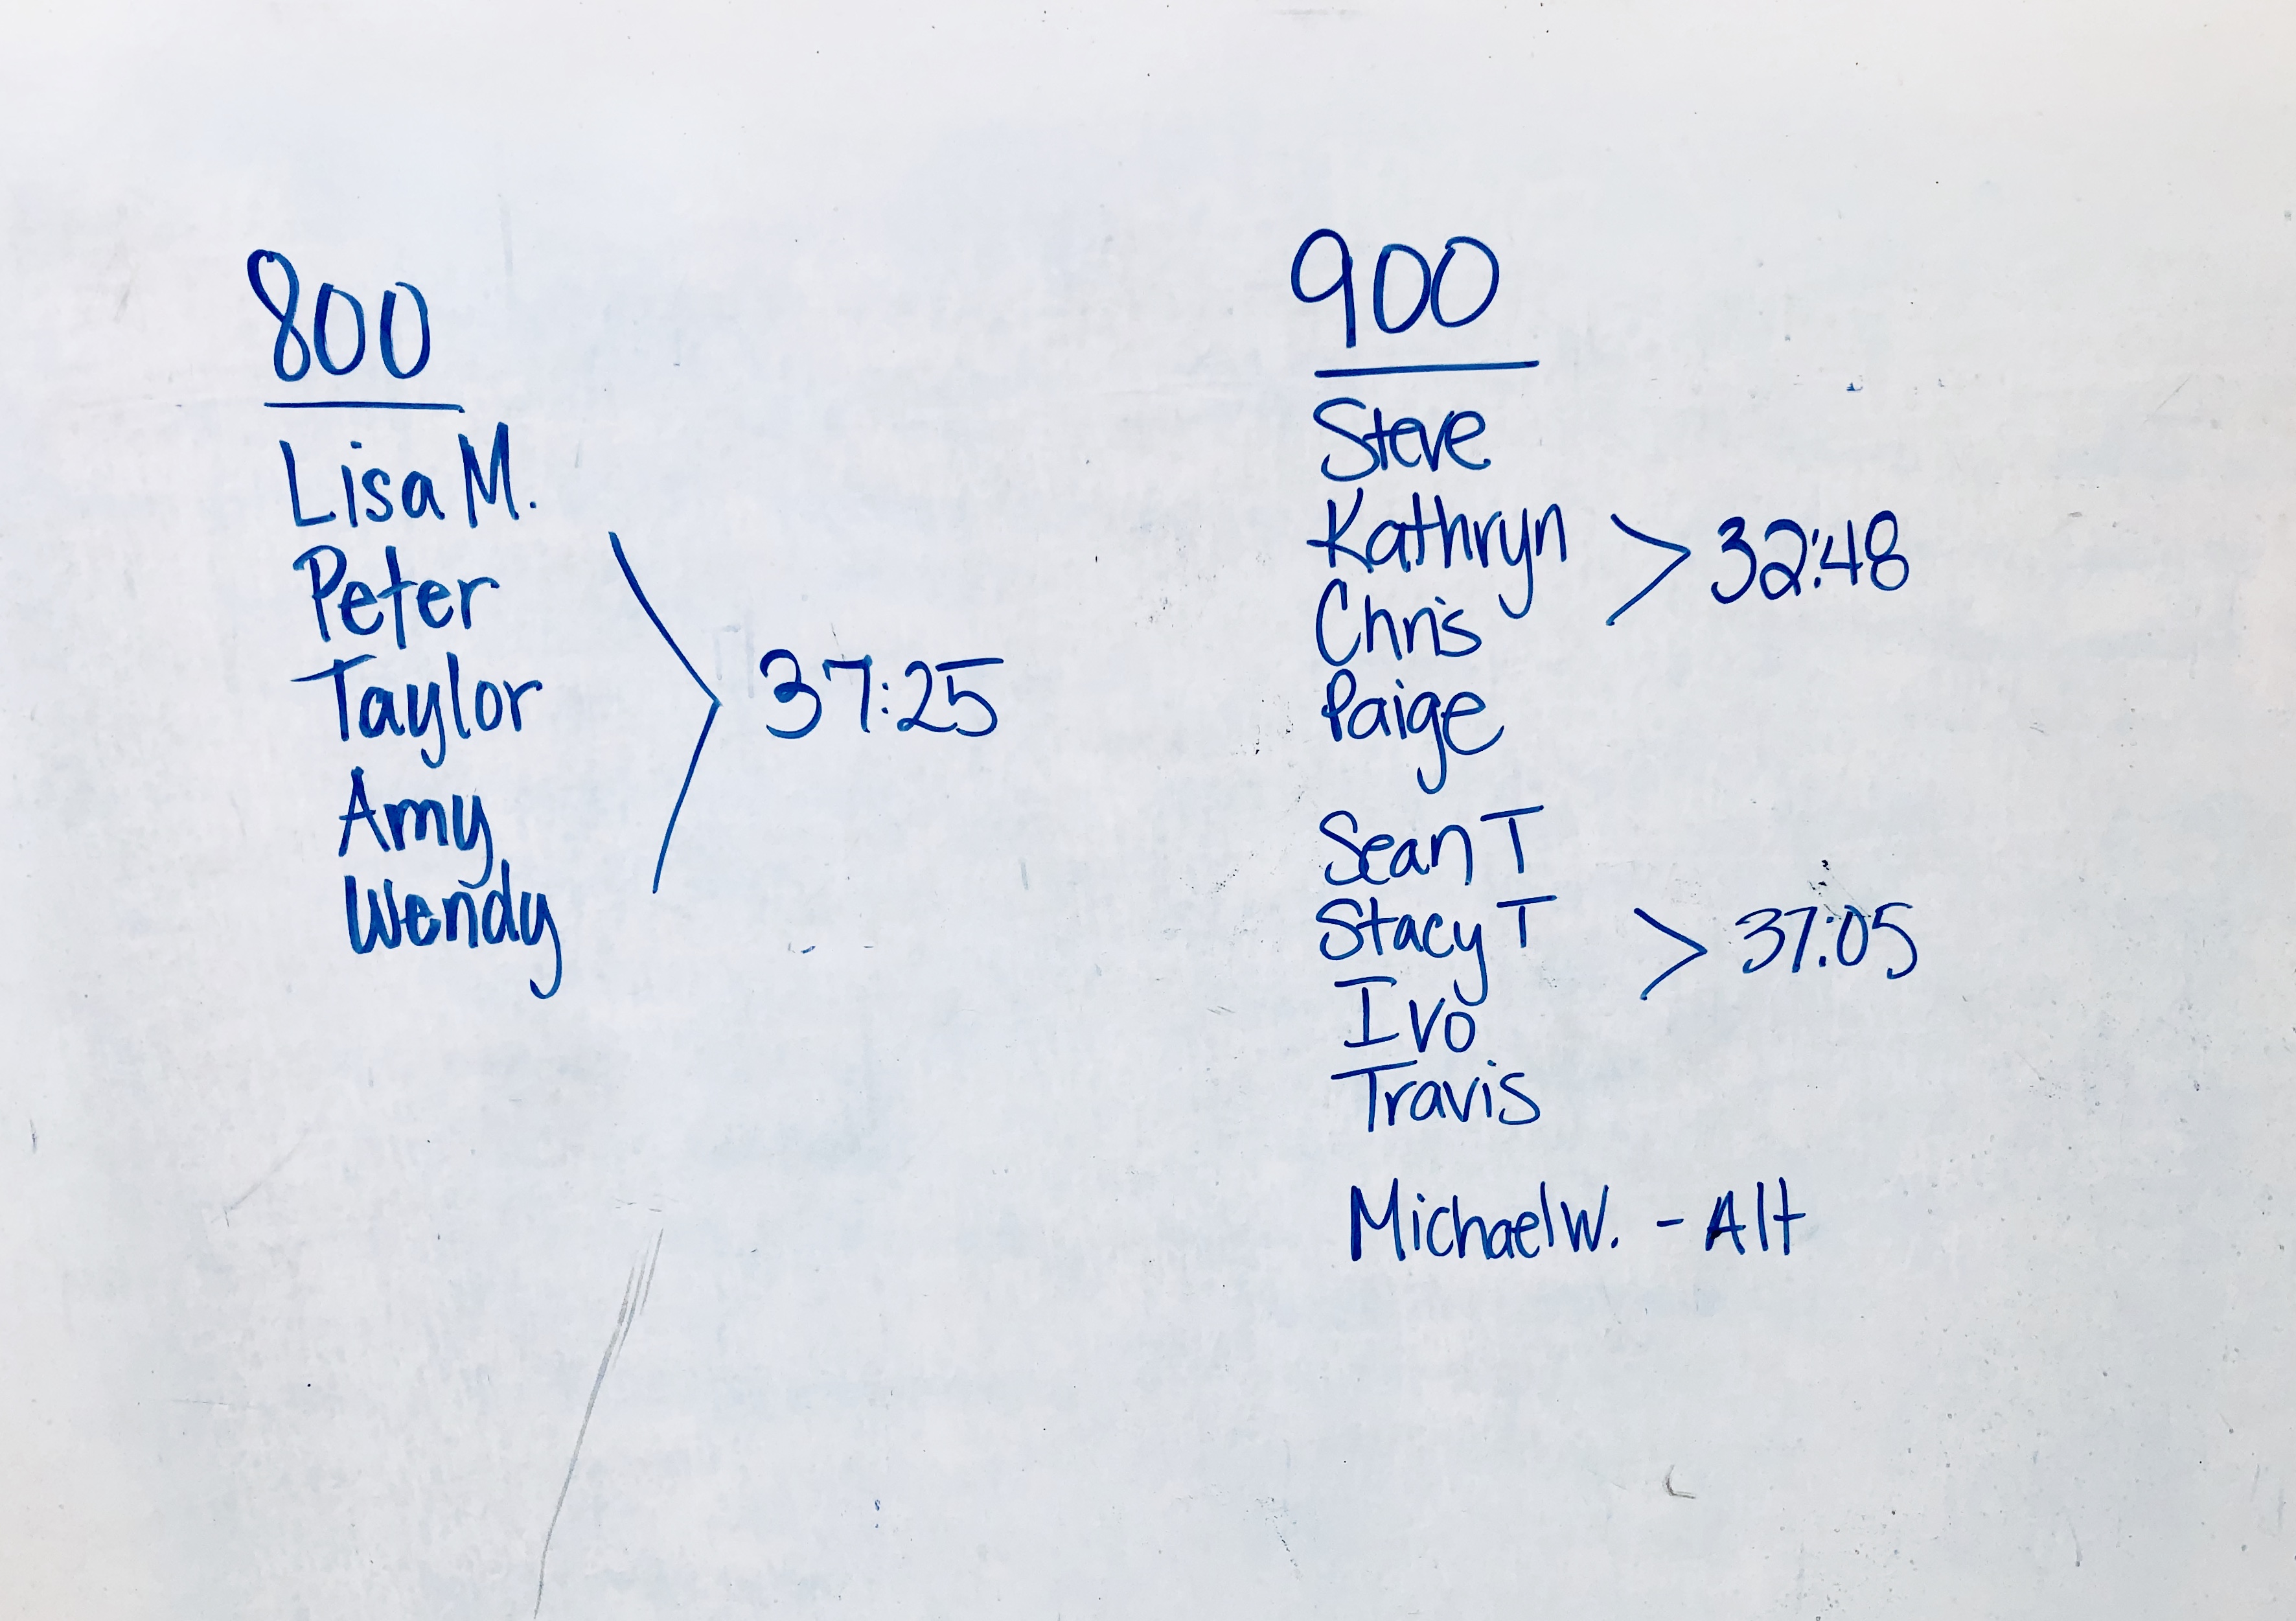 800
Lisa M.
Peter
Taylor
Amy
Wendy
> 37:25
900
Steve
Kathryn
Chris
Paige
> 32:48
Sean T
Stacy T
Ivo
Travis
> 37:05
Michael W. - Alt